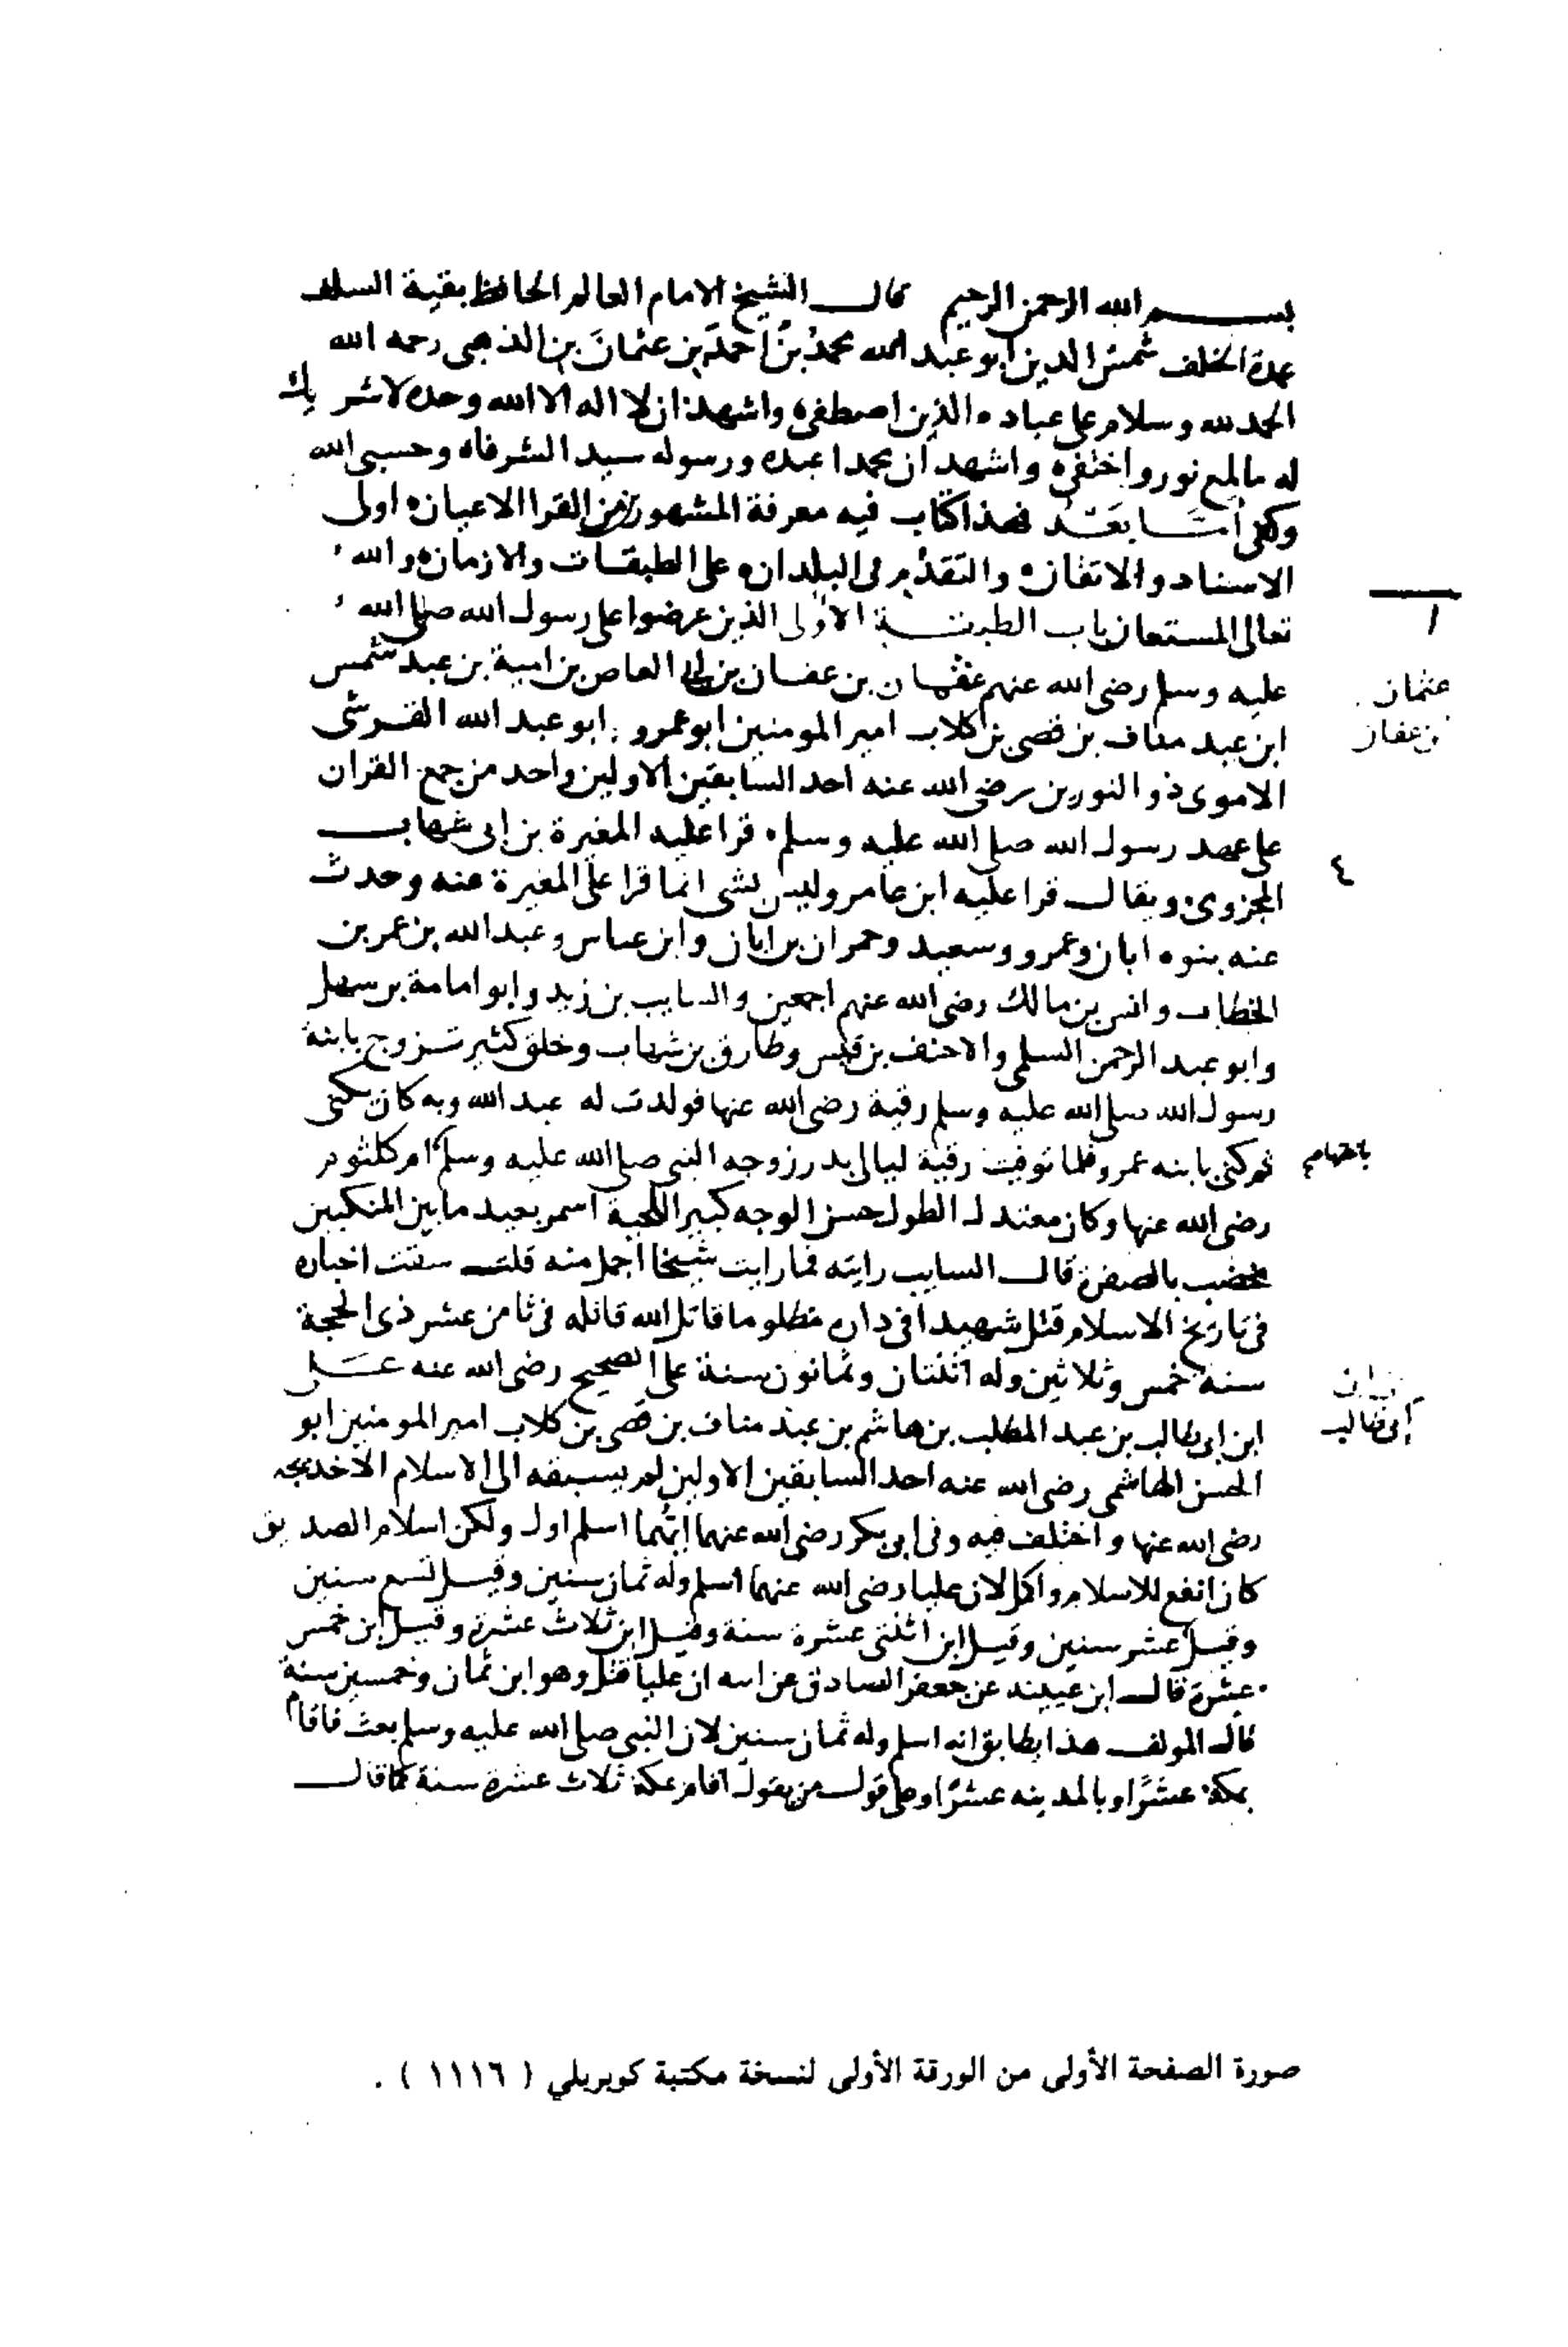 بسم الله الرحمن الرحيم قال الشيخ الامام العالم الحافظ بقية السلف
عمدة الخلف شمس الدين ابو عبد الله محمد بن احمد بن عثمان بن الذهبي رحمه الله
الحمد لله وسلام على عباده الذين اصطفى واشهد ان لا اله الا الله وحده لا شريك
له ما لمع نور واختفى واشهد ان محمدا عبده ورسوله سيد الشرفاه وحسبى الله
وكفى امَّا بَعْد فهذا كتاب فيه معرفة المشهورين من القرا الاعيان اولى
الاسناد والاتقان والتقدم فى البلدان على الطبقات والازمان والله
تعالى المستعان باب الطبقة الاولى الذين عرضوا على رسول الله صلى الله
عليه وسلم رضى الله عنهم عثمان بن عفان بن ابى العاص بن امية بن عبد شمس
ابن عبد مناف بن قصى بن كلاب امير المومنين ابو عمرو ابو عبد الله القرشى
الاموى ذو النورين رضى الله عنه احد السابقين الاولين واحد من جمع القران
على عهد رسول الله صلى الله عليه وسلم قرا عليه المغيرة بن ابى شهاب
المخزومى ويقال قرا عليه ابن عامر وليس بشى انما قرا على المغيرة عنه وحدث
عنه بنوه ابان وعمرو وسعيد وحمران بن ابان وابن عباس وعبد الله بن عمر بن
الخطاب وانس بن مالك رضى الله عنهم اجمعين والسايب بن زيد وابو امامة بن سهل
وابو عبد الرحمن السلمى والاحنف بن قيس وطارق بن شهاب وخلق كثير تزوج بابنة
رسول الله صلى الله عليه وسلم رقية رضى الله عنها فولدت له عبد الله وبه كان يكنى
ثم كنى بابنه عمرو فلما توفيت رقية ليالى بدر زوجه النبى صلى الله عليه وسلم ام كلثوم
رضى الله عنها وكان معتدل الطول حسن الوجه كبير اللحية اسمر بعيد ما بين المنكبين
يخضب بالصفرة قال السايب رايته فما رايت شيخا اجمل منه قلت سقت اخباره
فى تاريخ الاسلام قتل شهيدا فى داره مظلوما قاتل الله قاتله فى ثامن عشر ذى الحجة
سنة خمس وثلاثين وله اثنتان وثمانون سنة على الصحيح رضى الله عنه على
ابن ابى طالب بن عبد المطلب بن هاشم بن عبد مناف بن قصى بن كلاب امير المومنين ابو
الحسن الهاشمى رضى الله عنه احد السابقين الاولين لم يسبقه الى الاسلام الا خديجه
رضى الله عنها واختلف فيه وفى ابى بكر رضى الله عنهما ايهما اسلم اول ولكن اسلام الصديق
كان انفع للاسلام واكمل لان عليا رضى الله عنهما اسلم وله ثمان سنين وقيل تسع سنين
وقيل عشر سنين وقيل ابن اثنتى عشرة سنة وقيل ابن ثلاث عشرة وقيل ابن خمس
عشرة قال ابن عيينه عن جعفر الصادق عن ابيه ان عليا قتل وهو ابن ثمان وخمسين سنة
قال المولف هذا يطابق انه اسلم وله ثمان سنين لان النبى صلى الله عليه وسلم بعث فاقام
بمكة عشرًا وبالمدينه عشرًا وعلى قول من يقول اقام بمكة ثلاث عشرة سنة كما قال
١
عثمان
بن عفان
٤
أبى طالب
صورة الصفحة الأولى من الورقة الأولى لنسخة مكتبة كوبريلي ( ١١١٦ ) .